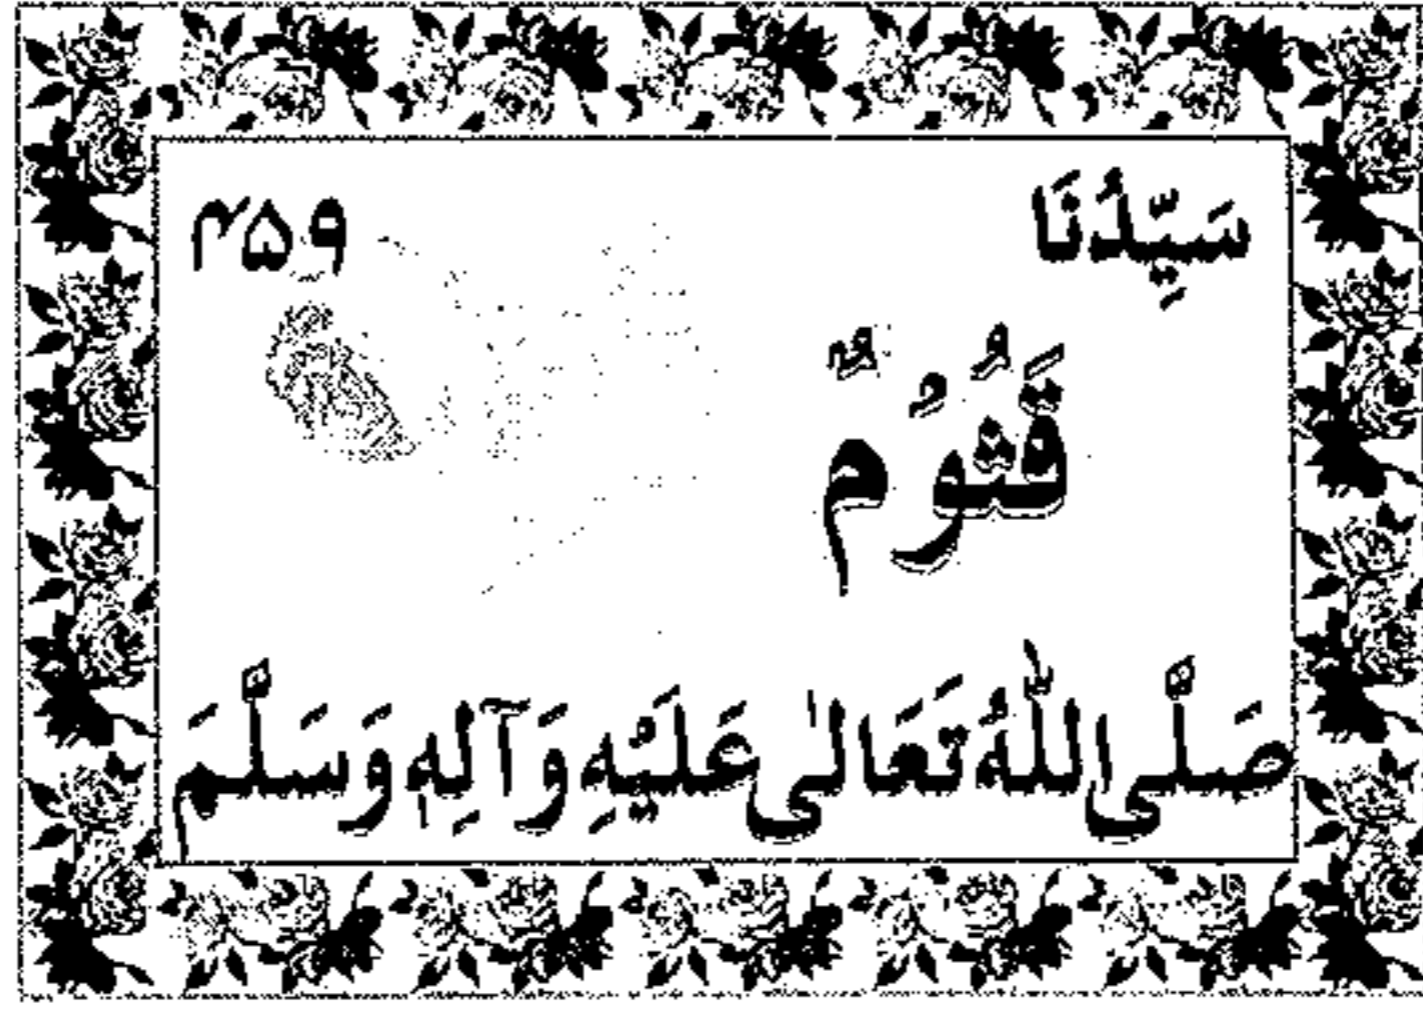 سَيِّدُنَا ۴۵۹
قَثُوُمٌ
صَلَّى اللّٰهُ تَعَالٰى عَلَيْهِ وَآلِهٖ وَسَلَّمَ